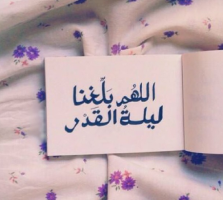 اللهم بَلِّغنا
ليلة القَدْر